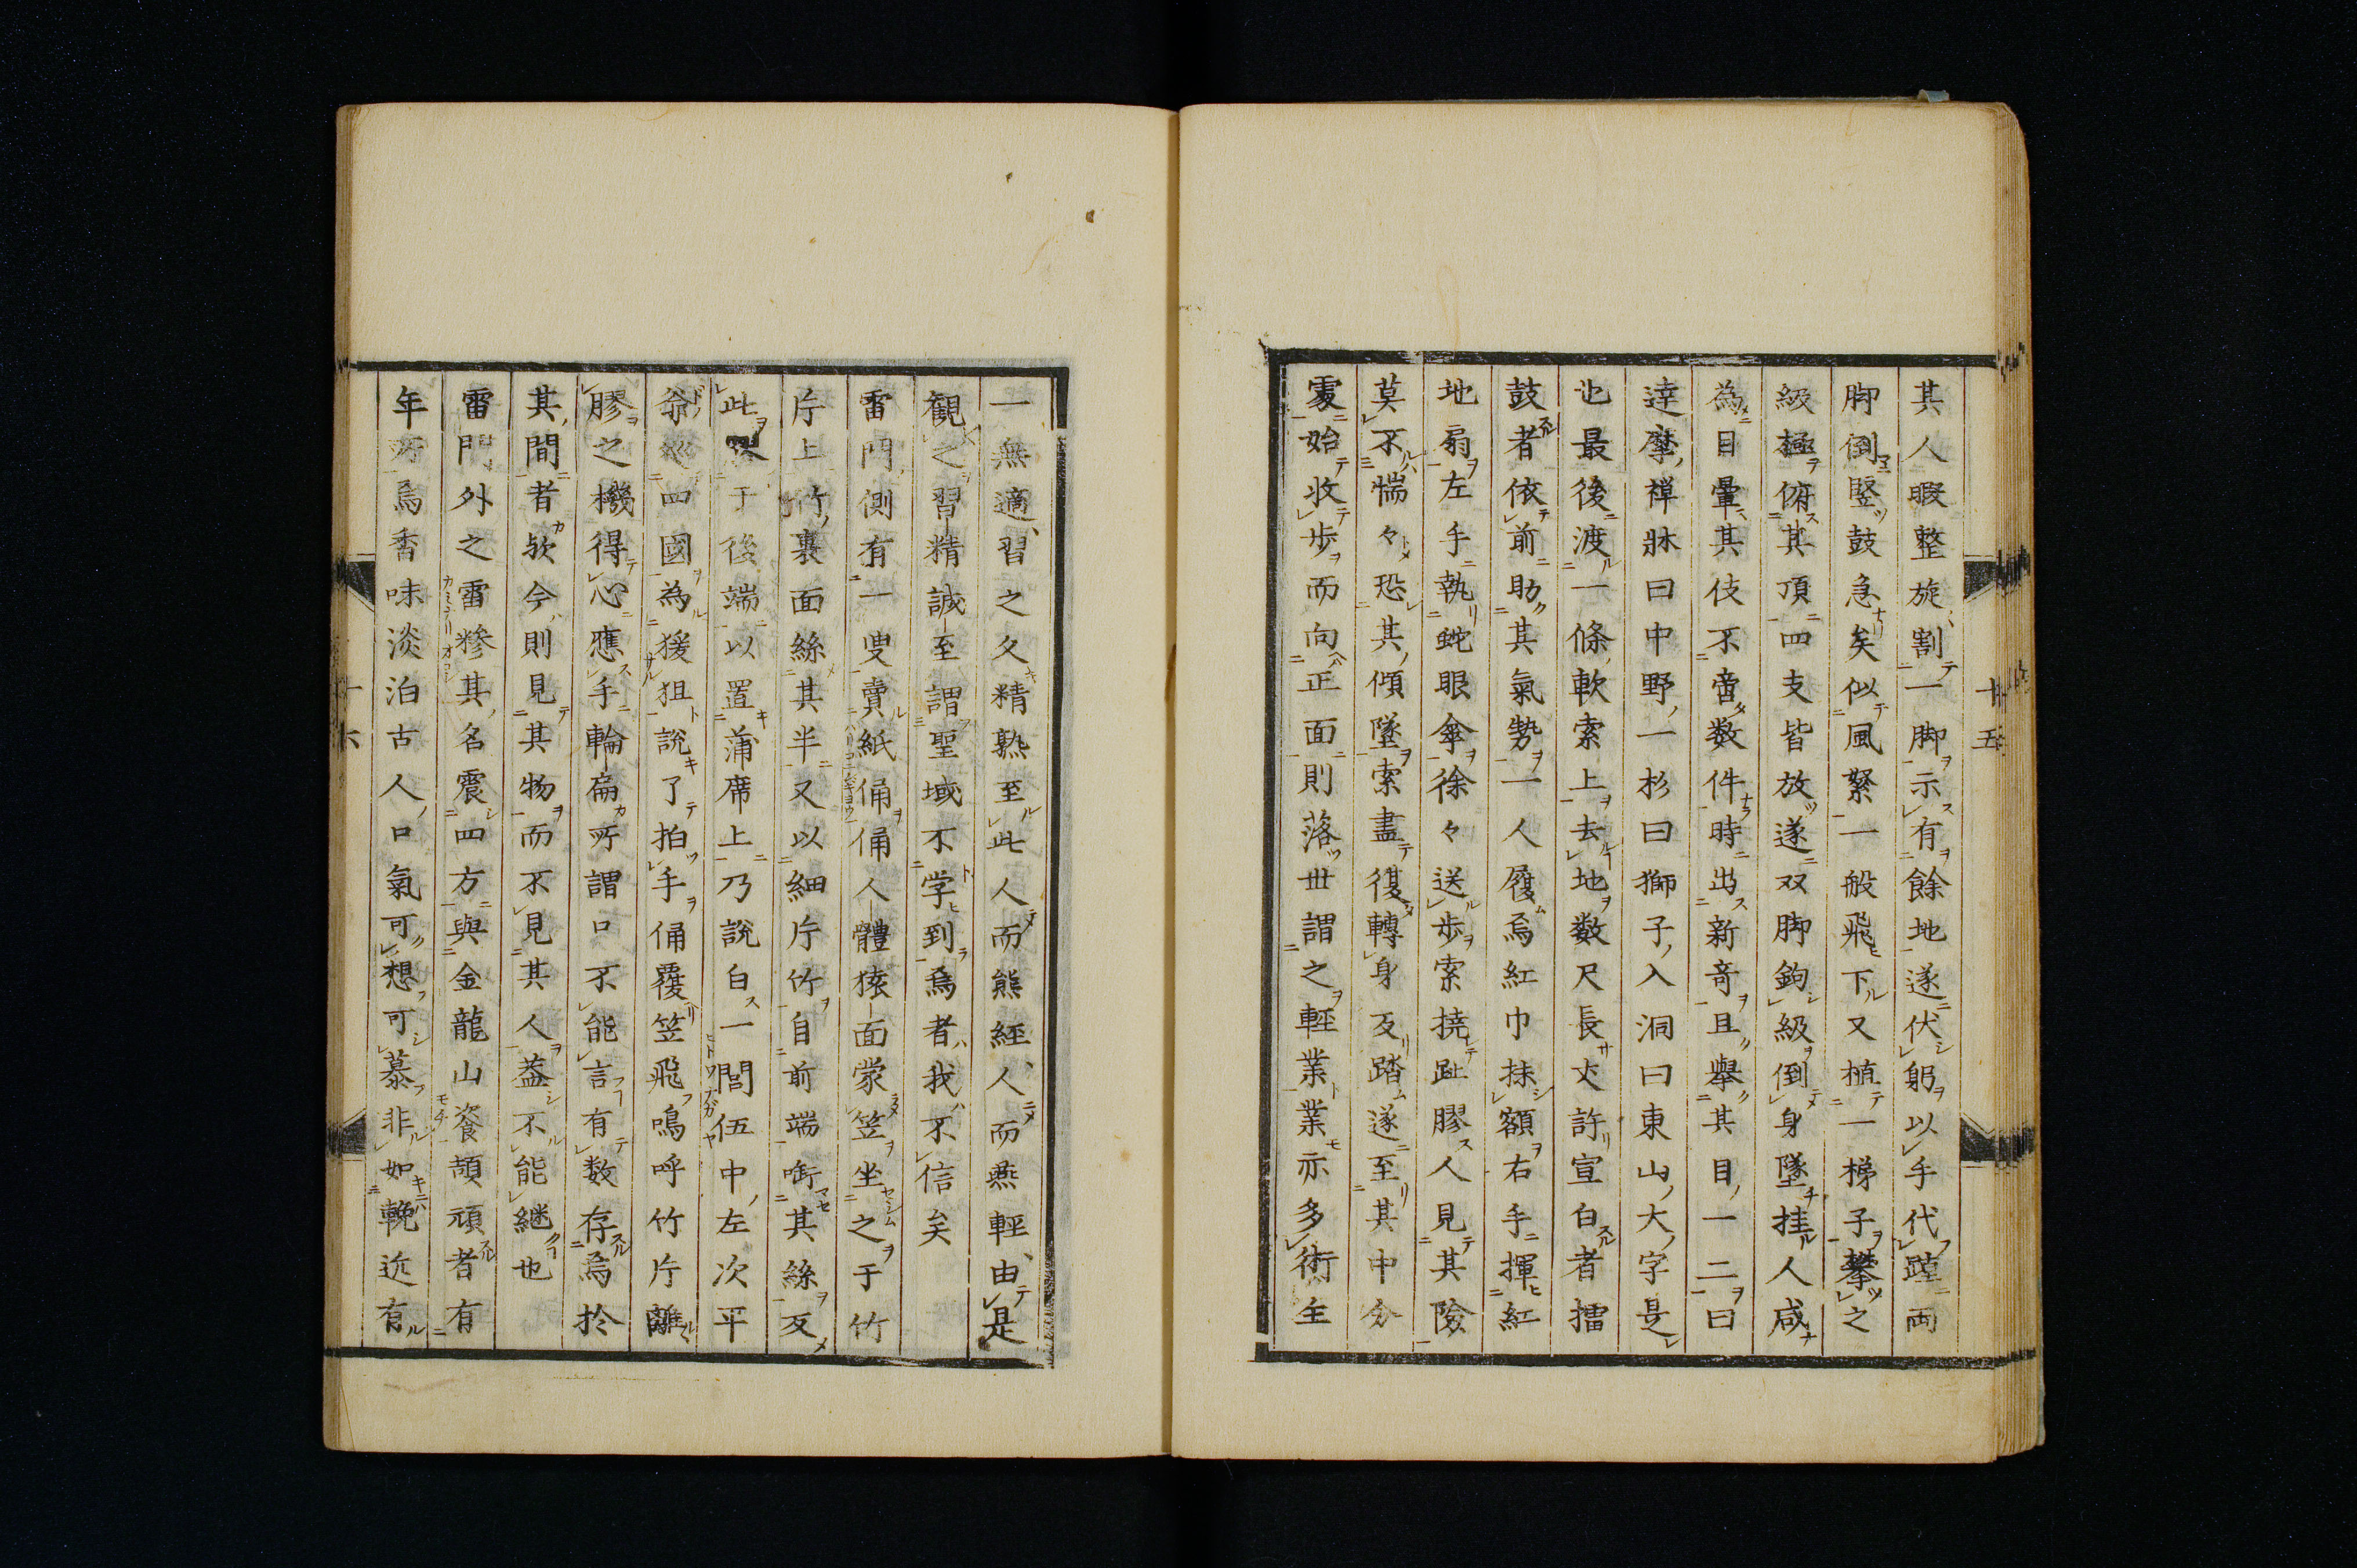 十五
其人暇整旋割一脚示有餘地遂伏躬以手代蹱両
脚倒竪鼓急矣似風緊一般飛下又植一梯子攀之
級極俯其頂四支皆放遂双脚鉤級倒身墜挂人咸
為目暈其伎不啻数件時出新竒且擧其目一二曰
達摩禅牀曰中野一杉曰獅子入洞曰東山大字是
也最後渡一條軟索上去地数尺長丈許宣白者擂
鼓者依前助其氣勢一人履舄紅巾抹額右手揮紅
地扇左手執蛇眼傘徐々送歩索撓趾膠人見其險
莫不惴々恐其傾墜索盡復轉身反踏遂至其中分
處始收歩而向正面則落世謂之輕業業亦多術主
一無適習之久精熟至此人而熊經人而燕輕由是
觀之習精誠至謂聖域不学到焉者我不信矣
雷門側有一叟賣紙俑俑人體猿面蒙笠坐之于竹
片上竹裏面絲其半又以細片竹自前端啣其絲反
此于後端以置蒲席上乃說白一閭伍中左次平
翁巡四國為猨狙說了拍手俑覆笠飛鳴呼竹片離
膠之機得心應手輪扁所謂口不能言有数存焉於
其間者欤今則見其物而不見其人蓋不能継也
雷門外之雷糝其名震四方與金龍山餈頡頏者有
年所焉香味淡泊古人口氣可想可慕非如輓近有
十六